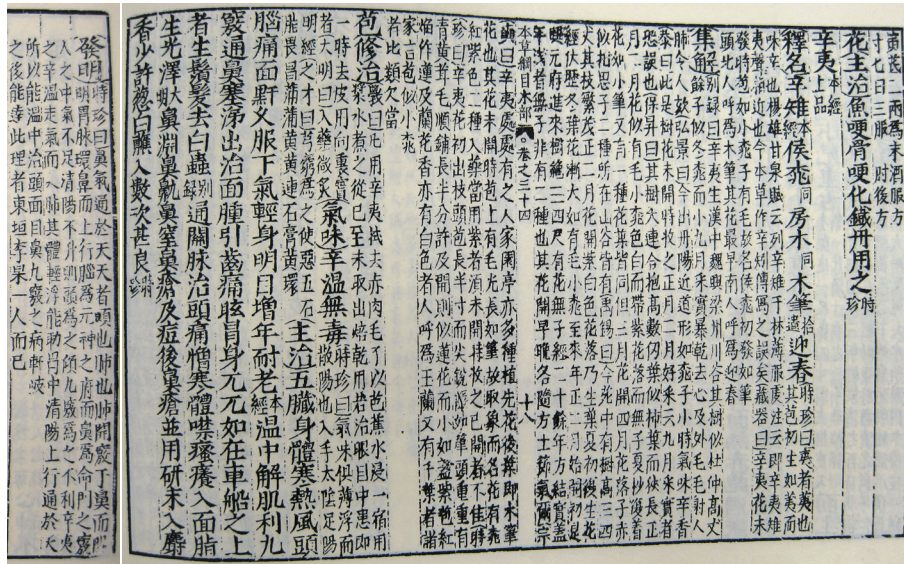 䓖各二兩為末酒服方
寸匕日三服 肘後方
花主治魚哽骨哽化鐵丹用之時珍
辛夷本經上品
釋名辛雉本經侯桃同房木同木筆拾遺迎春時珍曰夷者荑也其苞初生如荑而
味辛也揚雄甘泉賦云列辛雉于林薄服虔註云即辛夷雉
夷聲相近也今本草作辛矧傳寫之誤矣藏器曰辛夷花未
發時苞如小桃子有毛故名侯桃初發如筆
頭北人呼為木筆其花最早南人呼為迎春
集解別錄曰辛夷生漢中魏興梁州川谷其樹似杜仲高丈
餘子似冬桃而小九月采實暴乾去心及外毛毛射人
肺令人欬弘景曰今出丹陽近道形如桃子小時氣味辛香
恭曰此是樹花未開時收之正月二月好采云九月采實者
恐誤也保昇曰其樹大連合抱高數仞葉似柿葉而狹長正
月二月花似有毛小桃色白而帶紫花落而無子夏杪復着
花如小筆又有一種花葉皆同但三月花開四月花落子赤
似相思子二種所在山谷皆有禹錫曰今苑中有樹高三四
丈其枝繁茂正二月花開紫白色花落乃生葉夏初復生花
經伏歷冬葉花漸大如有毛小桃至來年正二月始開初是
興元府進來樹纔三四尺有花無子經二十餘年方結實蓋
年淺者無子非有二種也其花開早晚各隨方土節氣爾宗
本草綱目木部 卷之三十四 十八
奭曰辛夷處處有之人家園亭亦多種植先花後葉即木筆
花也其花未開時苞上有毛尖長如筆故取象而名花有桃
紅紫色二種入藥當用紫者須未開時收之已開者不佳時
珍曰辛夷花初出枝頭苞長半寸而尖銳儼如筆頭重重有
青黃茸毛順鋪長半分許及開則似蓮花而小如盞紫苞紅
焰作蓮及蘭花香亦有白色者人呼為玉蘭又有千葉者諸
家言苞似小桃
者比類欠當
苞修治斆曰凡用辛夷拭去赤肉毛了以芭蕉水浸一宿用
漿水煮之從巳至未取出焙乾用若治眼目中患即
一時去皮用向裏實
者大明曰入藥微炙氣味辛溫無毒時珍曰氣味俱薄浮而
散陽也入手太陰足陽
明經之才曰芎藭為之使惡五石
脂畏菖蒲蒲黃黃連石膏黃環主治五臟身體寒熱風頭
腦痛面䵟久服下氣輕身明目增年耐老本經溫中解肌利九
竅通鼻塞涕出治面腫引齒痛眩冒身兀兀如在車船之上
者生鬚髮去白蟲別錄通關脈治頭痛憎寒體噤瘙癢入面脂
生光澤大明鼻淵鼻鼽鼻窒鼻瘡及痘後鼻瘡並用研末入麝
香少許葱白蘸入數次甚良時珍
發明時珍曰鼻氣通於天天者頭也肺也肺開竅于鼻而陽
明胃脈環鼻而上行腦為元神之府而鼻為命門之竅
人之中氣不足清陽不升則頭為之傾九竅為之不利辛夷
之辛溫走氣而入肺其體輕浮能助胃中清陽上行通於天
所以能溫中治頭面目鼻九竅之病軒岐
之後能達此理者東垣李杲一人而已